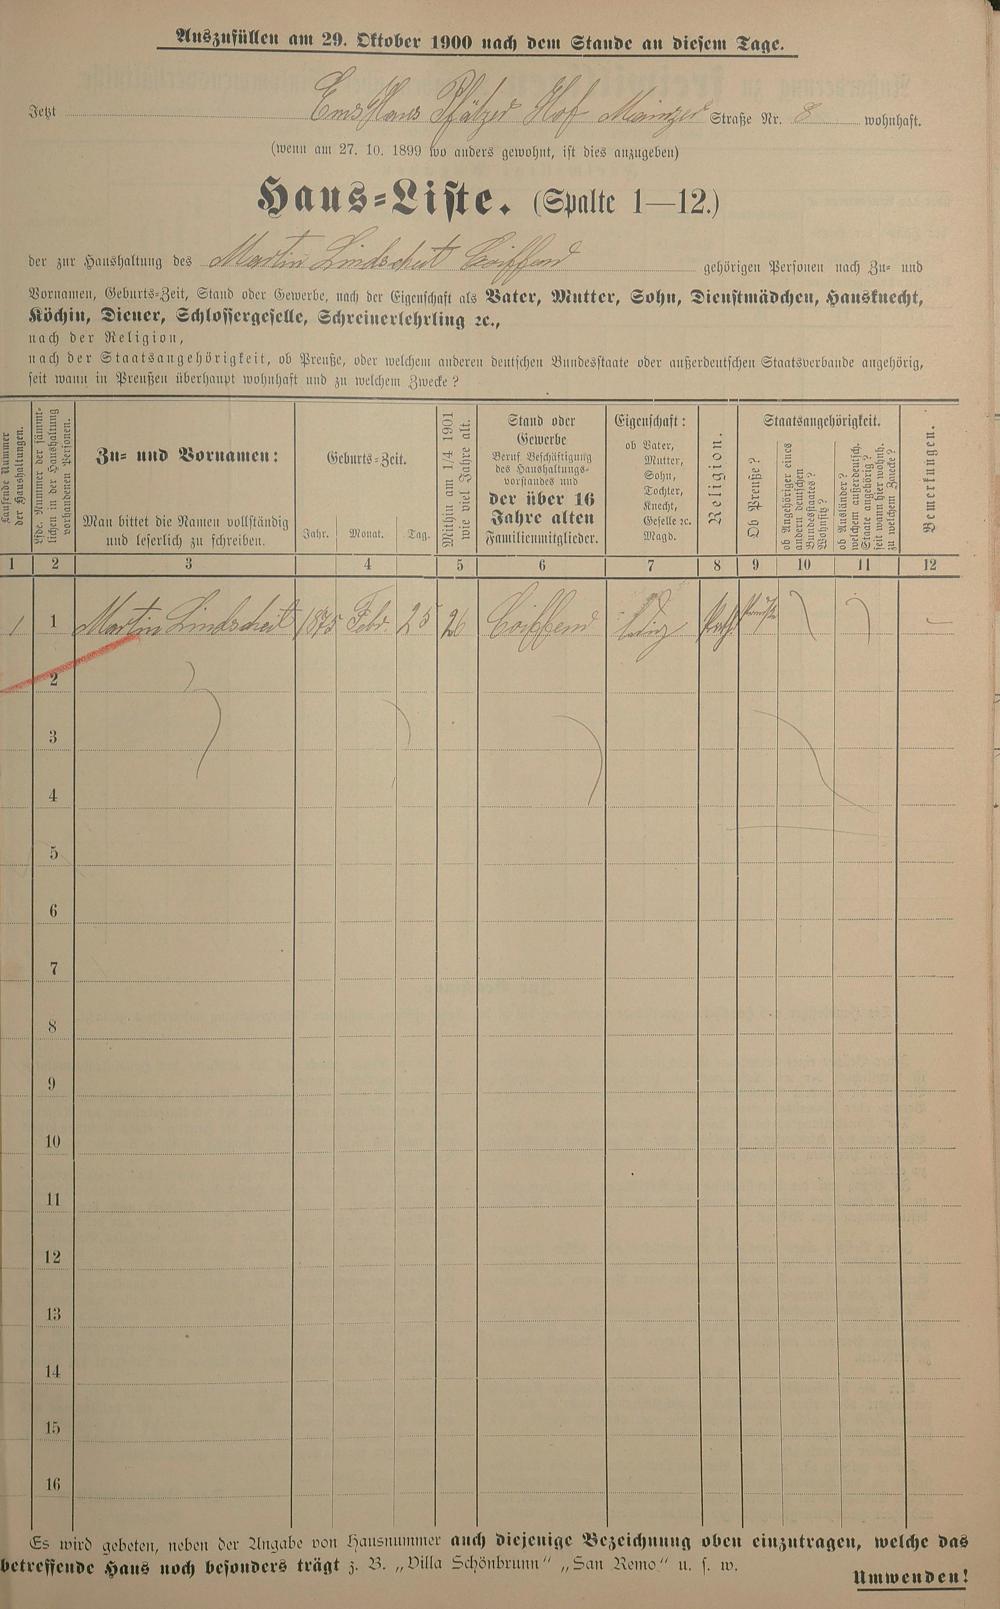 Auszufüllen am 29. Oktober 1900 nach dem Stande an diesem Tage.
Jetzt Ems Haus Pfälzer Hof Mainzer Straße Nr. 8 wohnhaft.
(wenn am 27. 10. 1899 wo anders gewohnt, ist dies anzugeben)
Haus-Liste. (Spalte 1—12.)
der zur Haushaltung des Martin Lindscheit Coiffeur gehörigen Personen nach Zu- und
Vornamen, Geburts-Zeit, Stand oder Gewerbe, nach der Eigenschaft als Vater, Mutter, Sohn, Dienstmädchen, Hausknecht,
Köchin, Diener, Schlossergeselle, Schreinerlehrling ꝛc.,
nach der Religion,
nach der Staatsangehörigkeit, ob Preuße, oder welchem anderen deutschen Bundesstaate oder außerdeutschen Staatsverbande angehörig,
seit wann in Preußen überhaupt wohnhaft und zu welchem Zwecke?
Laufende Nummer
der Haushaltungen.
Lfde. Nummer der sämmt-
lichen in der Haushaltung
vorhandenen Personen.
Zu- und Vornamen:
Man bittet die Namen vollständig
und leserlich zu schreiben.
Geburts-Zeit.
Jahr. Monat. Tag.
Mithin am 1/4 1901
wie viel Jahre alt.
Stand oder
Gewerbe
Beruf Beschäftigung
des Haushaltungs-
vorstandes und
der über 16
Jahre alten
Familienmitglieder.
Eigenschaft:
ob Vater,
Mutter,
Sohn,
Tochter,
Knecht,
Geselle ꝛc.
Magd.
Religion.
Staatsangehörigkeit.
Ob Preuße?
ob Angehöriger eines
andern deutschen
Bundesstaates?
Wohnsitz?
ob Ausländer?
welchem außerdeutsch.
Staate angehörig?
seit wann hier wohnh.
zu welchem Zwecke?
Bemerkungen.
1 2 3 4 5 6 7 8 9 10 11 12
1 1 Martin Lindscheit 1875 Febr. 25 26 Coiffeur ledig kath Preuße
2
3
4
5
6
7
8
9
10
11
12
13
14
15
16
Es wird gebeten, neben der Angabe von Hausnummer auch diejenige Bezeichnung oben einzutragen, welche das
betreffende Haus noch besonders trägt z. B. „Villa Schönbrunn“ „San Remo“ u. s. w.
Umwenden!